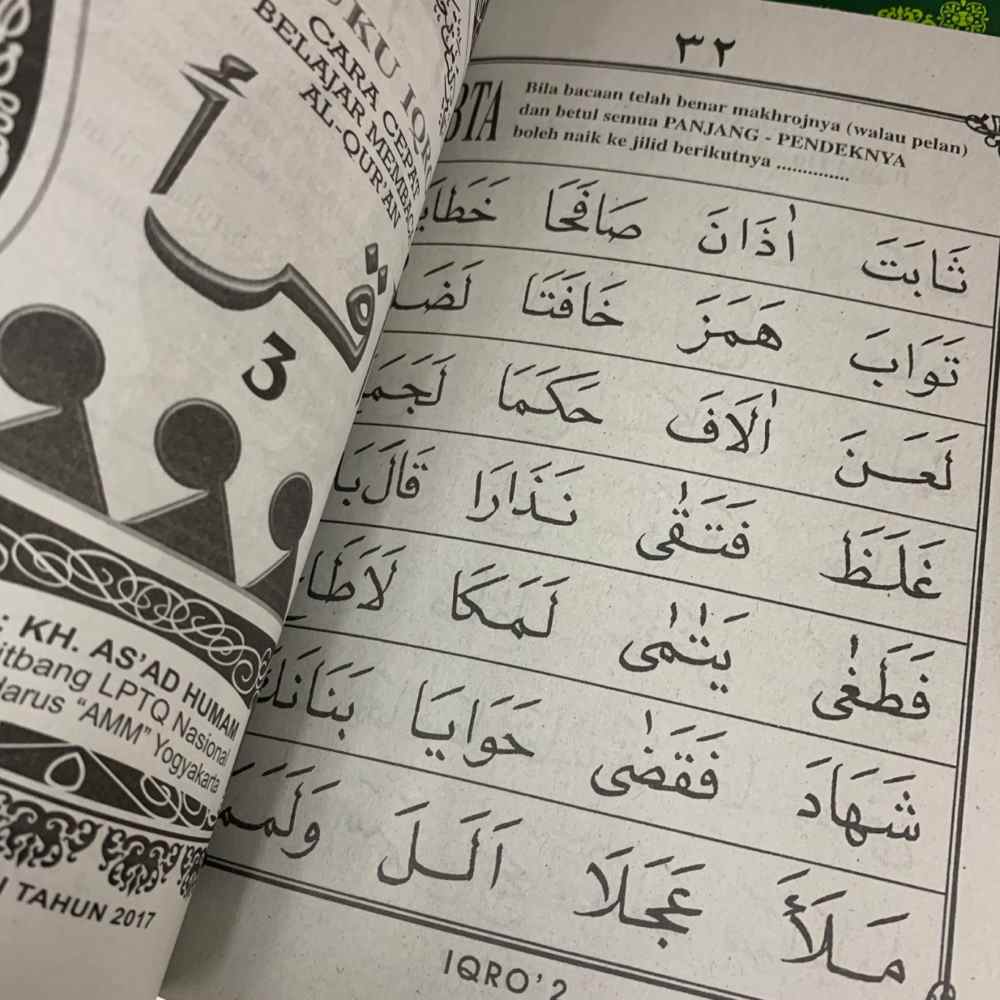 BUKU IQRO
CARA CEPAT
BELAJAR MEMBACA
AL-QUR'AN
3
: KH. AS'AD HUMAM
itbang LPTQ Nasional
darus "AMM" Yogyakarta
TAHUN 2017
٣٢
EBTA
Bila bacaan telah benar makhrojnya (walau pelan)
dan betul semua PANJANG - PENDEKNYA
boleh naik ke jilid berikutnya ..............
ثَابَتَ اٰذَانَ صَافَحَا
تَوَابَ هَمَزَ خَافَتَا
لَعَنَ اٰلَافَ حَكَمَا
غَلَظَ فَتَقٰى نَذَارَا قَالَ بَا
فَطَغٰى يَتٰمٰى لَمَكَا
شَهَادَ فَقَضٰى حَوَايَا
مَلَأَ عَجَلَا اَلَلَ
IQRO' 2